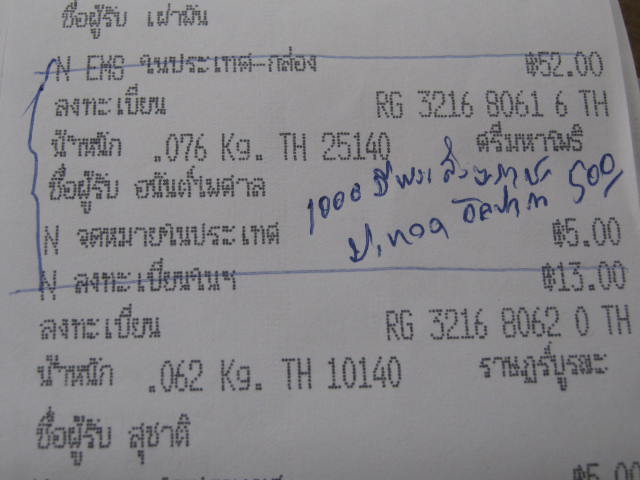 ชื่อผู้รับ เผ่าพัน
N EMS ในประเทศ-กล่อง ฿52.00
ลงทะเบียน RG 3216 8061 6 TH
น้ำหนัก .076 Kg. TH 25140 ศรีมหาโพธิ
ชื่อผู้รับ อนันต์ไพศาล
1000 ปี 500
N จดหมายในประเทศ ฿5.00
N ลงทะเบียนในฯ ฿13.00
ลงทะเบียน RG 3216 8062 0 TH
น้ำหนัก .062 Kg. TH 10140 ราษฎร์บูรณะ
ชื่อผู้รับ สุชาติ
฿5.00